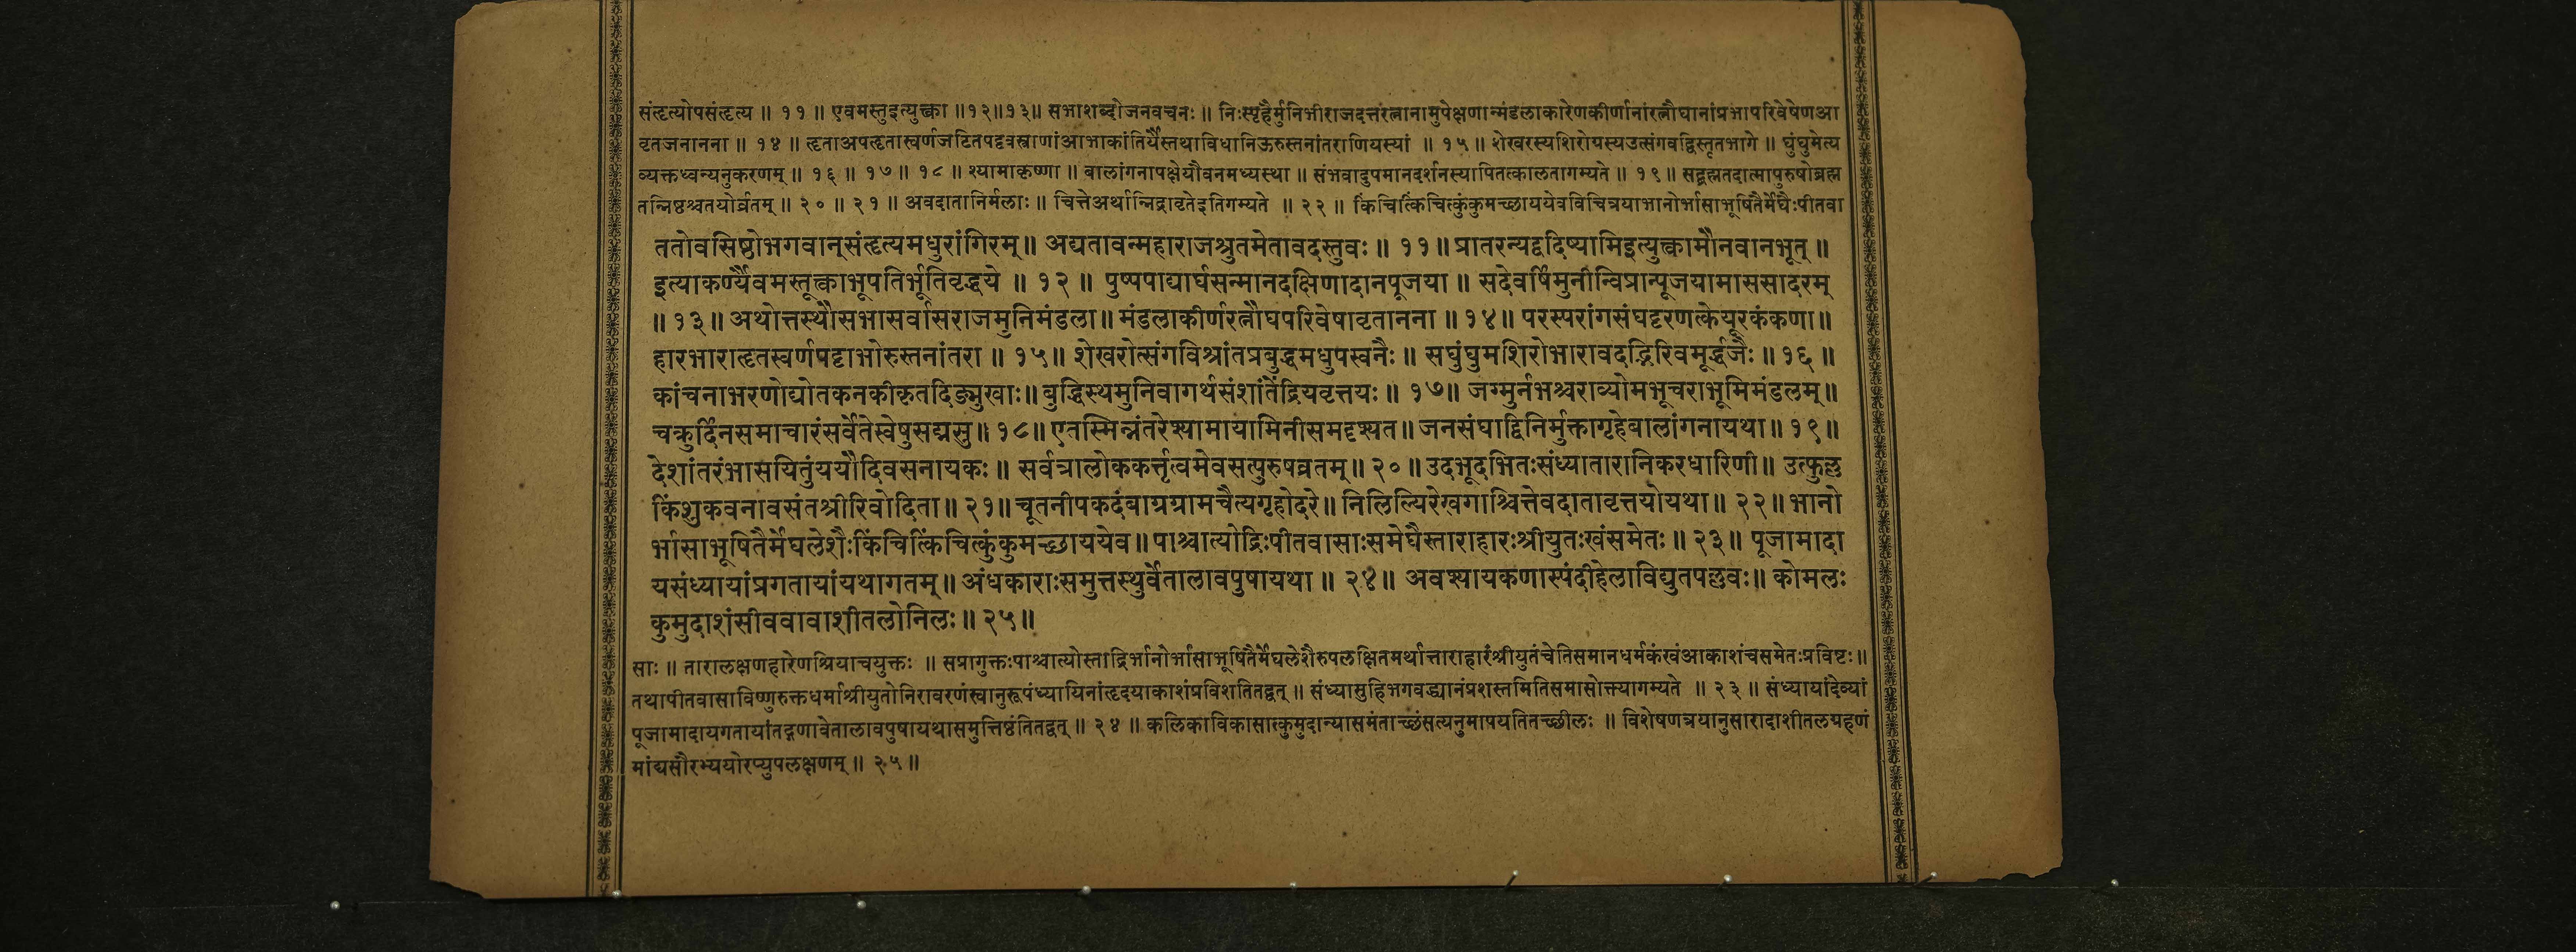 संहृत्योपसंहृत्य ॥ ११ ॥ एवमस्तुइत्युक्त्वा ॥१२॥१३॥ सभाशब्दोजनवचनः ॥ निःस्पृहैर्मुनिभीराजदत्तरत्नानामुपेक्षणान्मंडलाकारेणकीर्णानांरत्नौघानांप्रभापरिवेषेणआ
वृतजनानना ॥ १४ ॥ हृताअपहृतास्वर्णजटितपट्टवस्त्राणांआभाकांतिर्यैस्तथाविधानिऊरुस्तनांतराणियस्यां ॥ १५ ॥ शेखरस्यशिरोयस्यउत्संगवद्विस्तृतभागे ॥ घुंघुमेत्य
व्यक्तध्वन्यनुकरणम् ॥ १६ ॥ १७ ॥ १८ ॥ श्यामाकृष्णा ॥ बालांगनापक्षेयौवनमध्यस्था ॥ संभवादुपमानदर्शनस्यापितत्कालतागम्यते ॥ १९ ॥ सद्ब्रह्मतदात्मापुरुषोब्रह्म
तन्निष्ठश्चतयोर्व्रतम् ॥ २० ॥ २१ ॥ अवदातानिर्मलाः ॥ चित्तेअर्थान्निद्रावृतेइतिगम्यते ॥ २२ ॥ किंचित्किंचित्कुंकुमच्छाययेवविचित्रयाभानोर्भासाभूषितैर्मेघैःपीतवा
ततोवसिष्ठोभगवान्संहृत्यमधुरांगिरम्॥ अद्यतावन्महाराजश्रुतमेतावदस्तुवः ॥ ११ ॥ प्रातरन्यद्वदिष्यामिइत्युक्त्वामौनवानभूत् ॥
इत्याकर्ण्यैवमस्तूक्त्वाभूपतिर्भूतिवृद्धये ॥ १२ ॥ पुष्पपाद्यार्घसन्मानदक्षिणादानपूजया ॥ सदेवर्षिमुनीन्विप्रान्पूजयामाससादरम्
॥ १३ ॥ अथोत्तस्थौसभासर्वासराजमुनिमंडला ॥ मंडलाकीर्णरत्नौघपरिवेषावृतानना ॥ १४ ॥ परस्परांगसंघट्टरणत्केयूरकंकणा ॥
हारभाराहृतस्वर्णपट्टाभोरुस्तनांतरा ॥ १५ ॥ शेखरोत्संगविश्रांतप्रबुद्धमधुपस्वनैः ॥ सघुंघुमशिरोभारावदद्भिरिवमूर्द्धजैः ॥ १६ ॥
कांचनाभरणोद्योतकनकीकृतदिङ्मुखाः॥ बुद्धिस्थमुनिवागर्थसंशांतेंद्रियवृत्तयः ॥ १७॥ जग्मुर्नभश्चराव्योमभूचराभूमिमंडलम्॥
चक्रुर्दिनसमाचारंसर्वेतेस्वेषुसद्मसु॥ १८॥ एतस्मिन्नंतरेश्यामायामिनीसमदृश्यत॥ जनसंघाद्विनिर्मुक्तागृहेबालांगनायथा॥ १९॥
देशांतरंभासयितुंययौदिवसनायकः ॥ सर्वत्रालोककर्त्तृत्वमेवसत्पुरुषव्रतम्॥ २० ॥ उदभूदभितःसंध्यातारानिकरधारिणी॥ उत्फुल्ल
किंशुकवनावसंतश्रीरिवोदिता॥ २१॥ चूतनीपकदंबाग्रग्रामचैत्यगृहोदरे॥ निलिल्यिरेखगाश्चित्तेवदातावृत्तयोयथा॥ २२॥ भानो
र्भासाभूषितैर्मेघलेशैःकिंचित्किंचित्कुंकुमच्छाययेव॥ पाश्चात्योद्रिःपीतवासाःसमेघैस्ताराहारःश्रीयुतःखंसमेतः ॥ २३॥ पूजामादा
यसंध्यायांप्रगतायांयथागतम्॥ अंधकाराःसमुत्तस्थुर्वेतालावपुषायथा ॥ २४॥ अवश्यायकणास्पंदीहेलाविद्युतपल्लवः॥ कोमलः
कुमुदाशंसीववावाशीतलोनिलः॥ २५॥
साः ॥ तारालक्षणहारेणश्रियाचयुक्तः ॥ सप्रागुक्तःपाश्चात्योस्ताद्रिर्भानोर्भासाभूषितैर्मेघलेशैरुपलक्षितमर्थात्ताराहारंश्रीयुतंचेतिसमानधर्मकंखंआकाशंचसमेतःप्रविष्टः॥
तथापीतवासाविष्णुरुक्तधर्माश्रीयुतोनिरावरणंस्वानुरूपंध्यायिनांहृदयाकाशंप्रविशतितद्वत् ॥ संध्यासुहिभगवद्ध्यानंप्रशस्तमितिसमासोक्त्यागम्यते ॥ २३ ॥ संध्यायांदेव्यां
पूजामादायगतायांतद्गणावेतालावपुषायथासमुत्तिष्ठंतितद्वत् ॥ २४ ॥ कलिकाविकासात्कुमुदान्यासमंताच्छंसत्यनुमापयतितच्छीलः ॥ विशेषणत्रयानुसारादाशीतलग्रहणं
मांद्यसौरभ्ययोरप्युपलक्षणम् ॥ २५ ॥